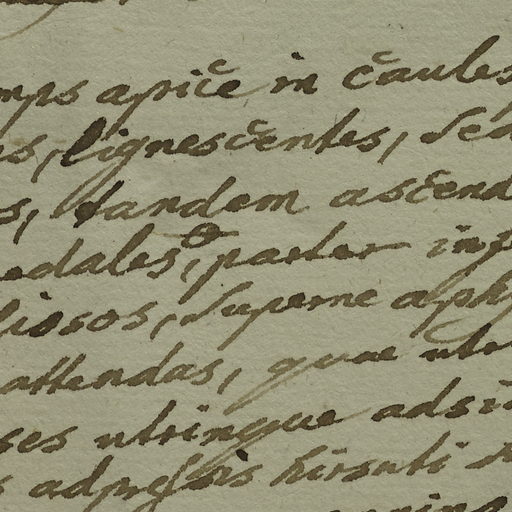 mps apice in caules
es, lignescentes, sed
s, tandem ascend
edales, praeter inf
liosos, superne aphy
attendas, quae utri
ses utrinque adsi
s adpressis hirsuti